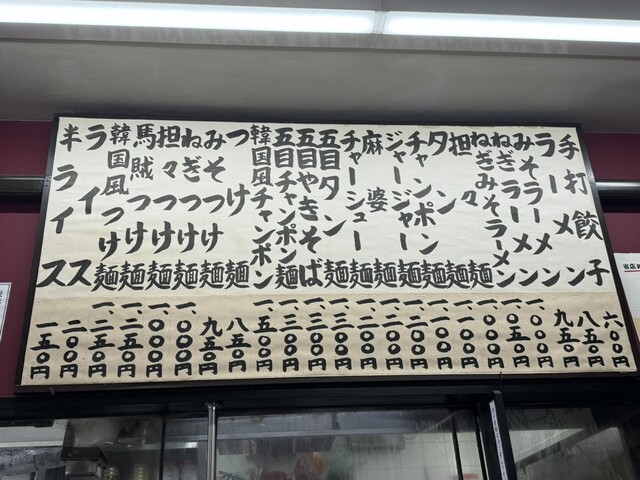 手打餃子 六〇〇円
ラーメン 八五〇円
みそラーメン 九五〇円
ねぎラーメン 一、〇〇〇円
ねぎみそラーメン 一、〇五〇円
担々麺 一、〇〇〇円
タン麺 一、〇〇〇円
チャンポン麺 一、一〇〇円
ジャージャー麺 一、二〇〇円
麻婆麺 一、一〇〇円
チャーシュー麺 一、二〇〇円
五目タン麺 一、三〇〇円
五目やきそば 一、三〇〇円
五目チャンポン麺 一、三〇〇円
韓国風チャンポン 一、五〇〇円
つけ麺 八五〇円
みそつけ麺 九五〇円
ねぎつけ麺 一、〇〇〇円
担々つけ麺 一、〇〇〇円
馬賊つけ麺 一、二五〇円
韓国風つけ麺 一、二五〇円
ライス 二〇〇円
半ライス 一五〇円